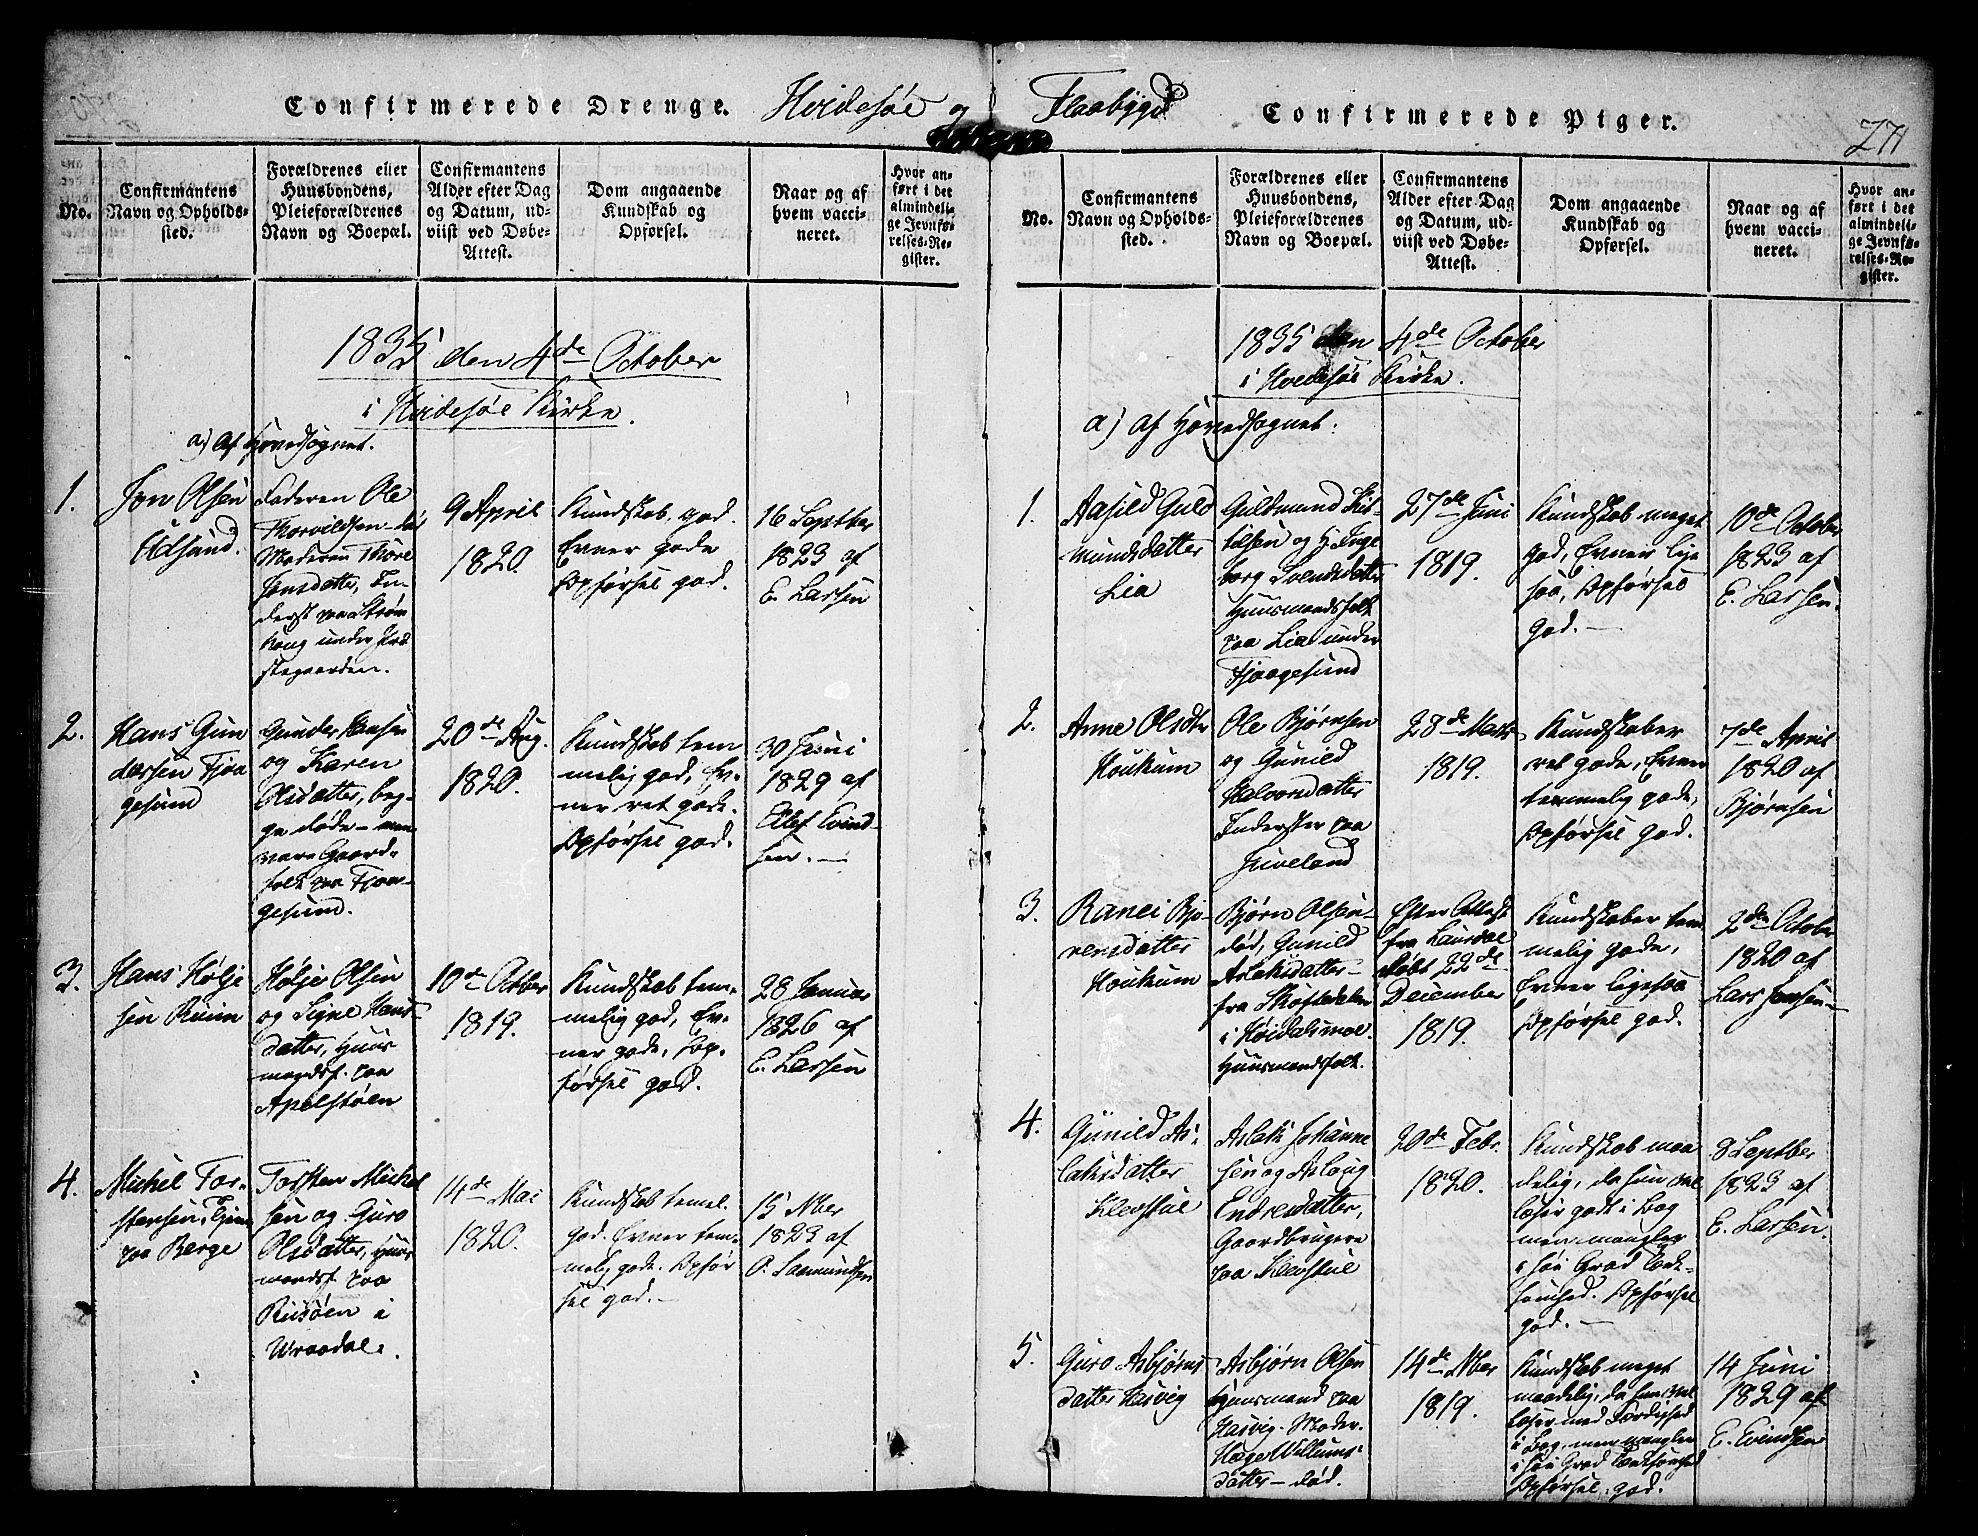 Confirmerede Drenge. Hvidesøe og
No.
Confirmantens
Navn og Opholds-
sted.
Forældrenes eller
Huusbondens,
Pleieforældrenes
Navn og Boepæl.
Confirmantens
Alder efter Dag
og Datum, ud-
viist ved Døbe-
Attest.
Dom angaaende
Kundskab og
Opførsel.
Naar og af
hvem vacci-
neret.
Hvor an-
ført i det
almindeli-
ge Jevnfø-
relses-Re-
gister.
1835 den 4de October
i Hvidesøe Kirke.
a) Af Hovedsognet.
1.
Jon Olsen
Udsund.
Faderen Ole
Thorvildsen
Moderen Thore
Jonsdatter, In-
derst paa Strøm
houg under Præ
stegaarden.
9 April
1820.
Kundskab god.
Evner gode
Opførsel god.
16 Septber
1823 af
E. Larsen
2.
Hans Gun
dersen Fjoa
gesund
Gunder Hansen
og Karen
Olsdatter, beg-
ge døde – men
vare Gaard-
folk paa Fjoa-
gesund.
20de Aug.
1820.
Kundskab tem
melig god, Ev-
ner ret gode.
Opførsel god.
30 Juni
1829 af
Elef Evind-
sen. –
3.
Hans Hølje
sen Ruiin
Hølje Olsen
og Signe Hans-
datter, Huus
mandsf. paa
Apelstøen
10de Octber
1819.
Kundskab tem-
melig god, Ev-
ner gode, Op-
førsel god.
28 Januar
1826 af
E. Larsen
4.
Michel Tor-
stensen, Tjen
paa Berge
Torsten Michel
sen og Guro
Olsdatter, Huus
mandsf. paa
Riisøen i
Wraadal.
14de Mai
1820.
Kundskab temel.
god. Evner tem-
melig gode. Opfør
sel god. –
15 Nber
1823 af
O. Saamundsen
Flaabygd Confirmerede Piger.
271
No.
Confirmantens
Navn og Opholds-
sted.
Forældrenes eller
Huusbondens,
Pleieforældrenes
Navn og Boepæl.
Confirmantens
Alder efter Dag
og Datum, ud-
viist ved Døbe-
Attest.
Dom angaaende
Kundskab og
Opførsel.
Naar og af
hvem vacci-
neret.
Hvor an-
ført i det
almindeli-
ge Jevnfø-
relses-Re-
gister.
1835 den 4de October
i Hvidesøe Kirke.
a) af Hovedsognet.
1.
Aasild Guld
mundsdatter
Lia
Guldmund Kit-
tilsen og H. Inge
borg Svendsdatter
Huusmandsfolk
paa Lia under
Fjoagesund
27de Juni
1819.
Kundskab meget
god, Evner lige
saa, Opførsel
god. –
10de October
1823 af
E. Larsen.
2.
Anne Olsdtr
Houkum
Ole Bjørnsen
og Gunild
Halvorsdatter
Inderster paa
Juveland
28de Marts
1819.
Kundskaber
ret gode, Evner
temmelig gode,
Opførsel god.
7de April
1820 af
Bjørnsen
3.
Ranei Bjø-
rensdatter
Houkum
Bjørn Olsen-
død, Gunild
Aslaksdatter –
fra Skoftedalen
i Høidalsmoe.
Huusmandsfolk.
Efter Attest
fra Laurdal
døbt 22de
December
1819.
Kundskaber tem
melig gode,
Evner ligesaa
Opførsel god.
2den October
1820 af
Lars Jensen –
4.
Gunild As-
laksdatter
Klevstul
Aslak Johanne
sen og Aslaug
Endresdatter,
Gaardbrugere
paa Klevstul
20de Febr.
1820.
Kundskab maa
delig, da hun vel
læser godt i Bog
men mangler
i høi Grad Tænk-
somhed. Opførsel
god. –
8 Septber
1823 af
E. Larsen.
5.
Guro Asbjørns
datter Hasvig
Asbjørn Olsen
Huusmand paa
Hasvig. Moder
Hæge Villums-
datter – død.
14de Nber
1819.
Kundskab meget
maadelig, da hun vel
læser med Færdighed
i Bog, men mangler
i høi Grad Tænksomhed
Opførsel god.
14 Juni
1829 af
E. Evindsen